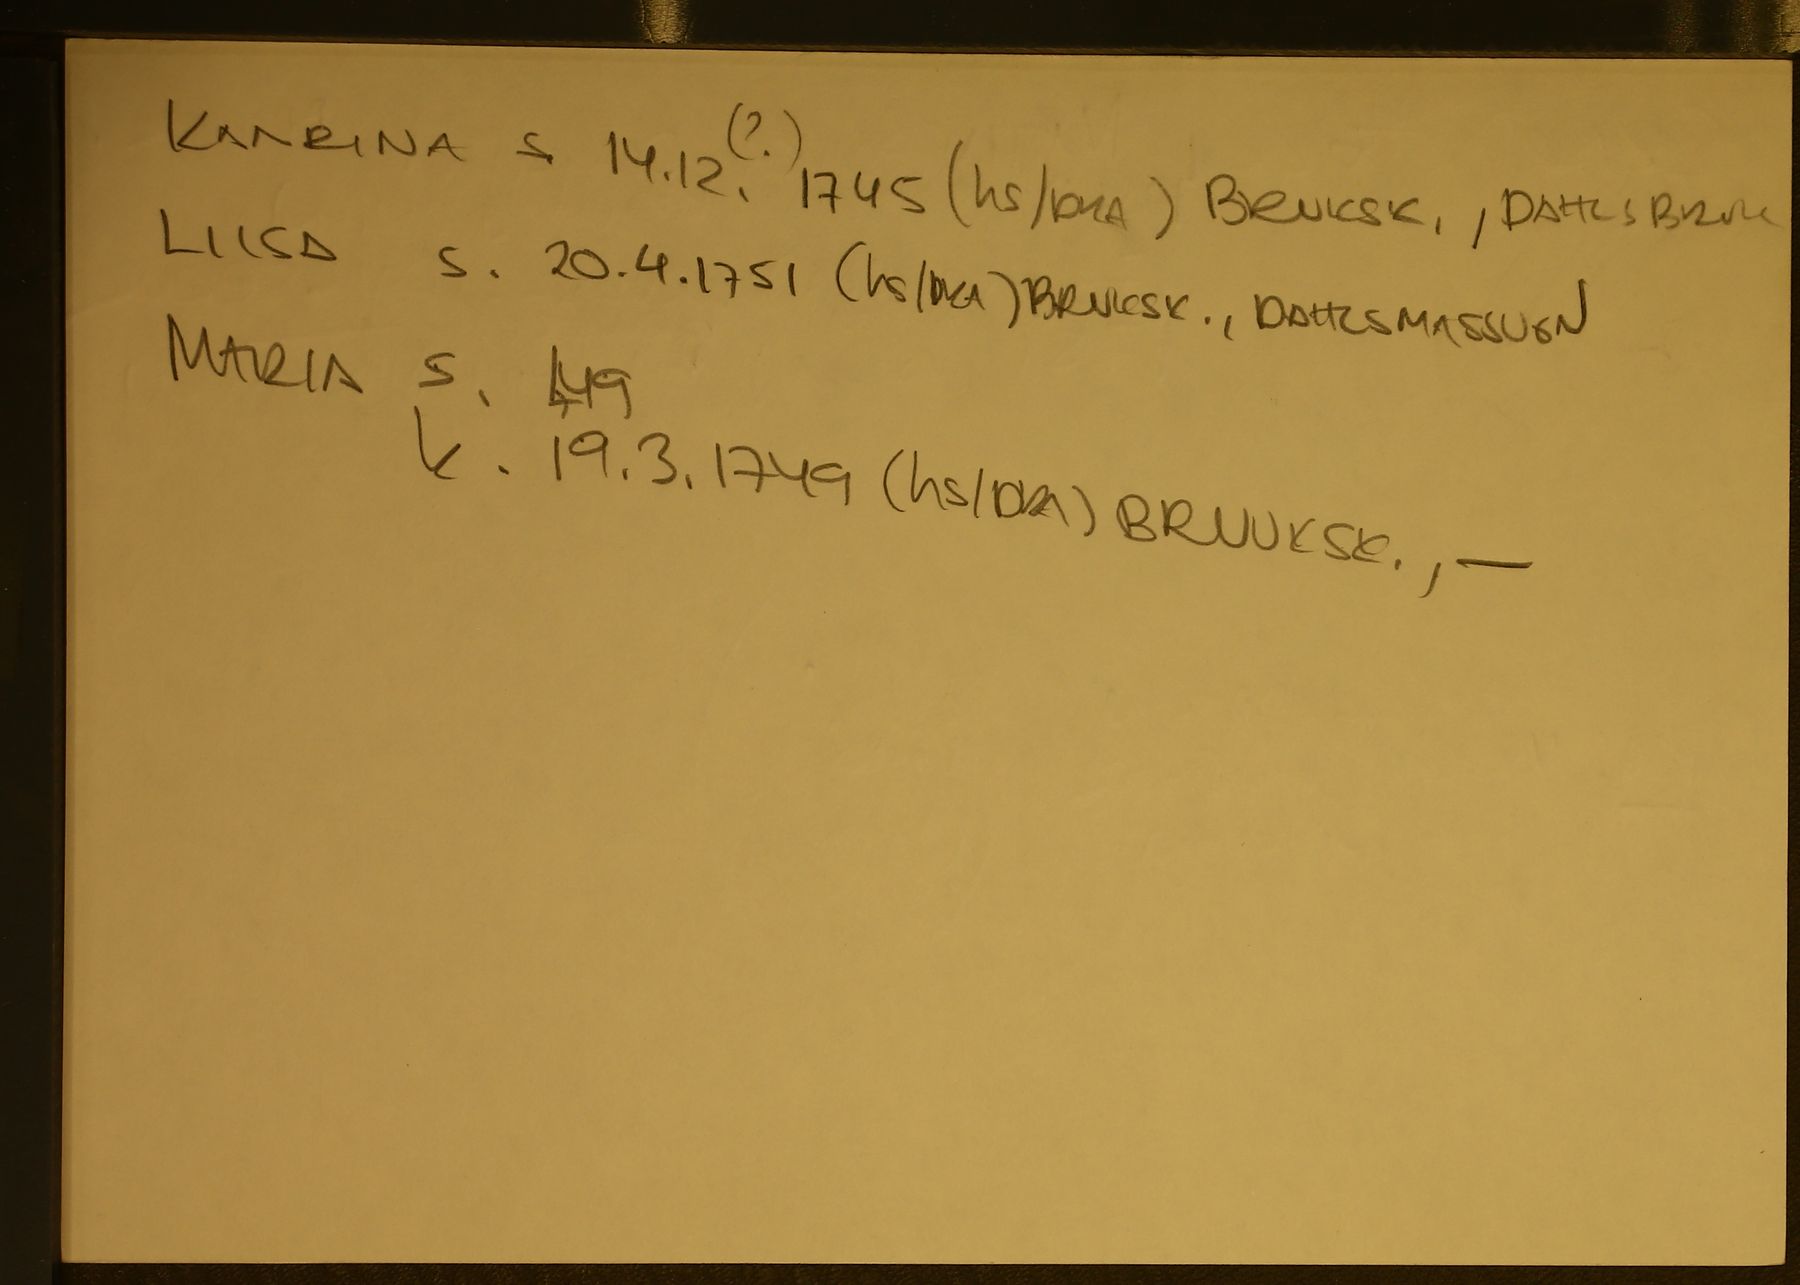 KAARINA S 14.12.(?) 1745 (hs/DKA) BRUKSK., DAHLSBRUK
LIISA S. 20.4.1751 (hs/DKA) BRUKSK., DAHLSMASSUGN
MARIA S. 49
K. 19.3.1749 (hs/DKA) BRUUKSK., —